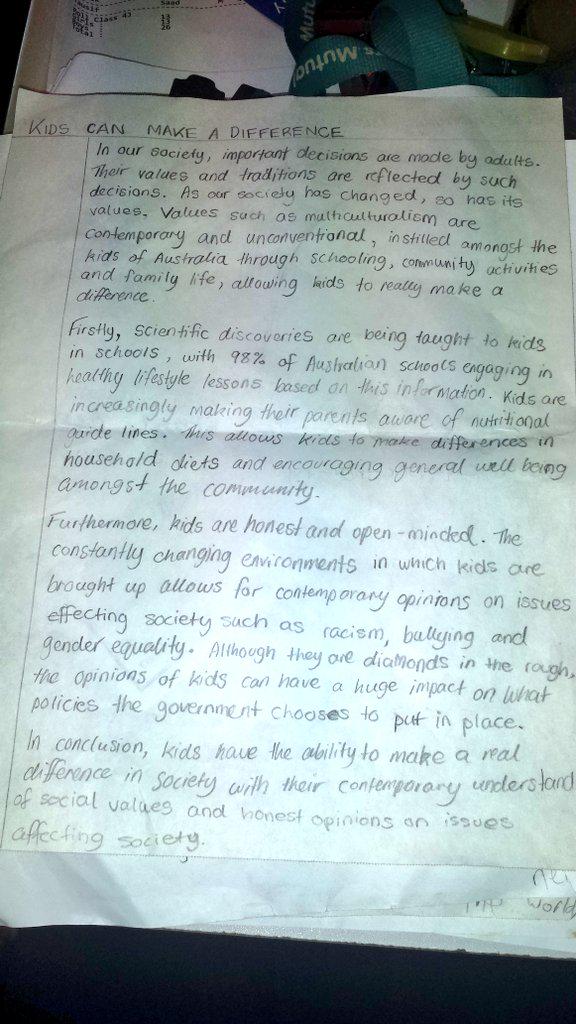 Saad
Class 43
13
13
Total 26
Mutu
s Mutua
KIDS CAN MAKE A DIFFERENCE
In our society, important decisions are made by adults.
Their values and traditions are reflected by such
decisions. As our society has changed, so has its
values. Values such as multiculturalism are
contemporary and unconventional, instilled amongst the
kids of Australia through schooling, community activities
and family life, allowing kids to really make a
difference.
Firstly, scientific discoveries are being taught to kids
in schools, with 98% of Australian schools engaging in
healthy lifestyle lessons based on this information. Kids are
increasingly making their parents aware of nutritional
guide lines. This allows kids to make differences in
household diets and encouraging general well being
amongst the community.
Furthermore, kids are honest and open-minded. The
constantly changing environments in which kids are
brought up allows for contemporary opinions on issues
effecting society such as racism, bullying and
gender equality. Although they are diamonds in the rough,
the opinions of kids can have a huge impact on what
policies the government chooses to put in place.
In conclusion, kids have the ability to make a real
difference in society with their contemporary understand
of social values and honest opinions on issues
affecting society.
world